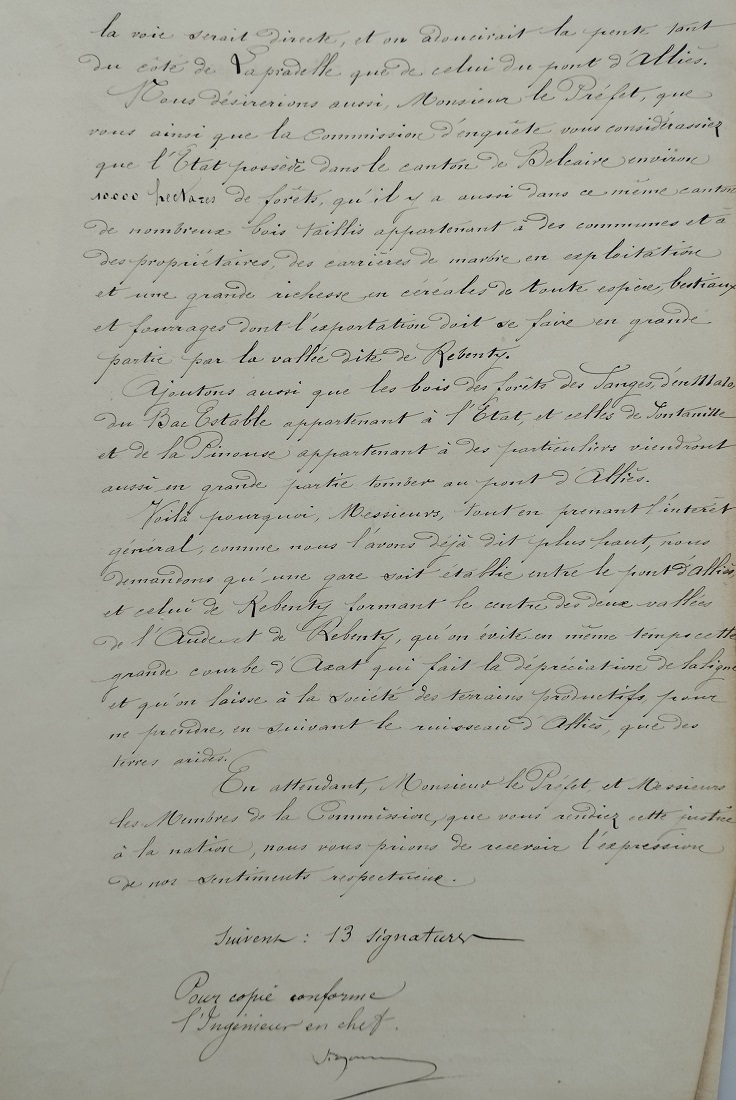 la voie serait directe, et on adoucirait la pente tant
du côté de Lapradelle que de celui du pont d'Alliès.
Nous désirerions aussi, Monsieur le Préfet, que
vous ainsi que la Commission d'enquête vous considérassiez
que l'Etat possède dans le canton de Belcaire environ
10000 hectares de forêts, qu'il y a aussi dans ce même canton
de nombreux bois taillis appartenant à des communes et à
des propriétaires, des carrières de marbre en exploitation
et une grande richesse en céréales de toute espèce, bestiaux
et fourrages dont l'exportation doit se faire en grande
partie par la vallée dite de Rebenty.
Ajoutons aussi que les bois des forêts des Fanges, d'en Malo,
du Bac Estable appartenant à l'Etat, et celles de Fontanille
et de la Pinouse appartenant à des particuliers viendront
aussi en grande partie tomber au pont d'Alliès.
Voilà pourquoi, Messieurs, tout en prenant l'intérêt
général, comme nous l'avons déjà dit plus haut, nous
demandons qu'une gare soit établie entre le pont d'Alliès,
et celui de Rebenty formant le centre des deux vallées
de l'Aude et de Rebenty, qu'on évite en même temps cette
grande courbe d'Axat qui fait la dépréciation de la ligne
et qu'on laisse à la société des terrains productifs, pour
ne prendre, en suivant le ruisseau d'Alliès, que des
terres arides.
En attendant, Monsieur le Préfet et Messieurs
les Membres de la Commission, que vous rendiez cette justice
à la nation, nous vous prions de recevoir l'expression
de nos sentiments respectueux.
Suivent : 13 signatures
Pour copie conforme
l'Ingénieur en chef.